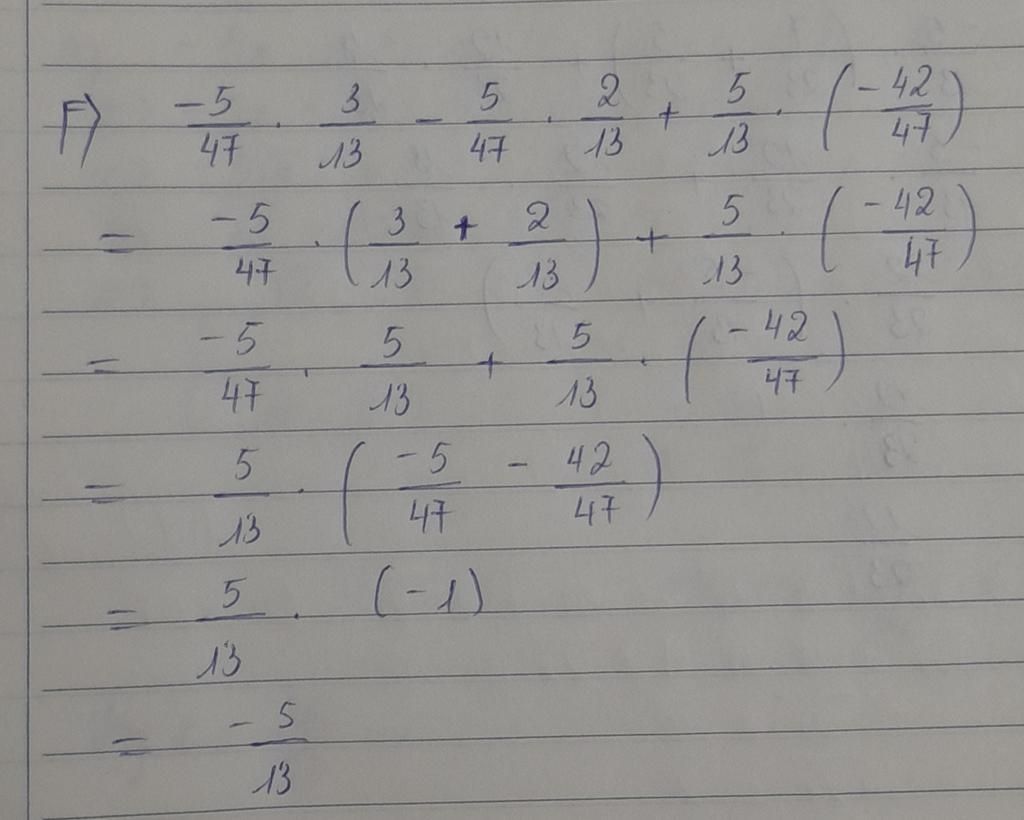 F) -5/47 · 3/13 - 5/47 · 2/13 + 5/13 · (-42/47)
= -5/47 · (3/13 + 2/13) + 5/13 · (-42/47)
= -5/47 · 5/13 + 5/13 · (-42/47)
= 5/13 · (-5/47 - 42/47)
= 5/13 · (-1)
= -5/13